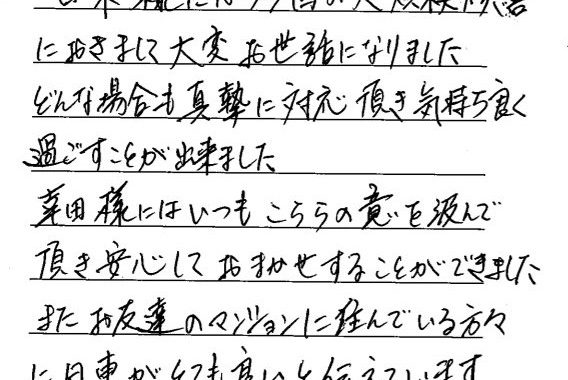 におきまして大変お世話になりました
どんな場合も真摯に対応頂き気持ち良く
過ごすことが出来ました
草田様にはいつもこちらの意を汲んで
頂き安心しておまかせすることができました
またお友達のマンションに住んでいる方々
に日東がとても良いと伝えています